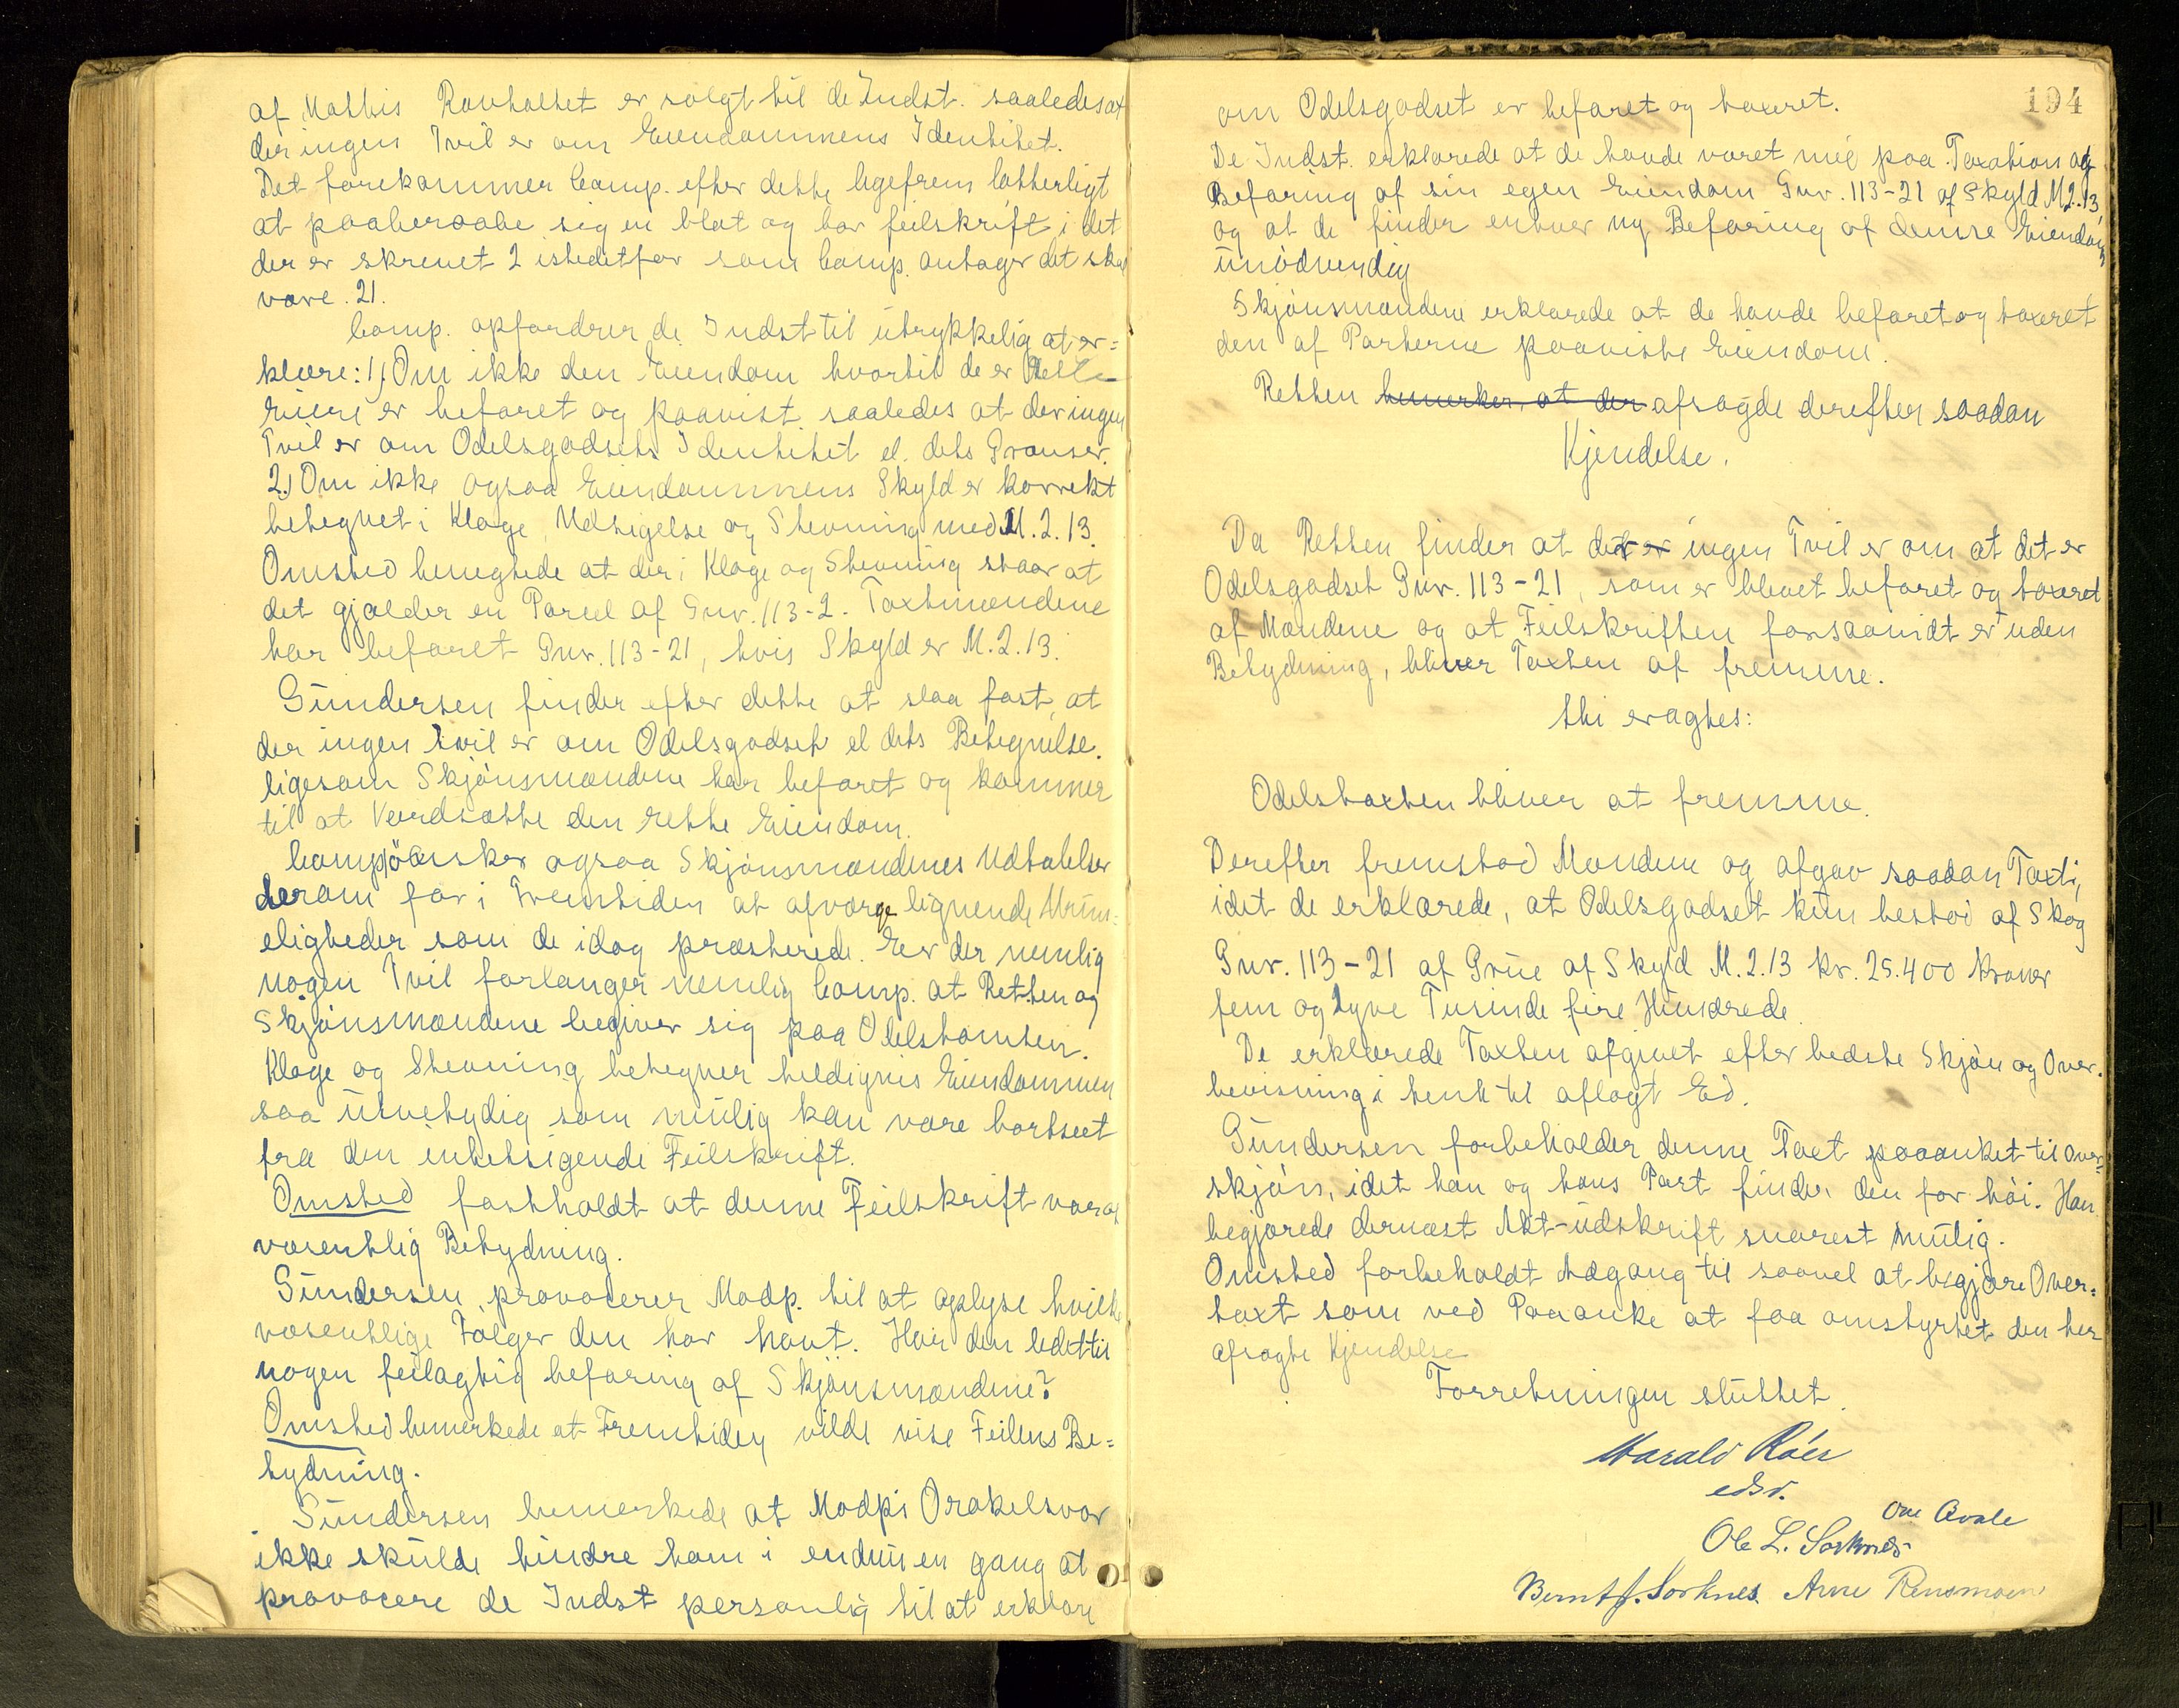 af Mathis Rovholtet er solgt til de Indst. saaledes at
der ingen Tvil er om Eiendommens Identitet.
Det forekommer Comp. efter dette ligefrem latterligt
at paaberaabe sig en blot og bar feilskrift, i det
der er skrevet 2 istedetfor som Comp. antager det skal
være. 21.
Comp. opfordrer de Indst til utrykkelig at er=
klære: 1) Om ikke den Eiendom hvortil de er rette
Eiere er befaret og paavist saaledes at der ingen
Tvil er om Odelsgodsets Identitet el. dets Grænser.
2.) Om ikke ogsaa Eiendommens Skyld er korrekt
betegnet i Klage, Udsigelse og Stevning med M. 2.13.
Omsted benegtede at der i Klage og Stevning staar at
det gjælder en Parcel af Gnr. 113-2. Taxtmændene
har befaret Gnr. 113-21, hvis Skyld er M. 2.13.
Gundersen finder efter dette at slaa fast, at
der ingen Tvil er om Odelsgodset el dets Betegnelse.
ligesom Skjønsmændene har befaret og kommer
til at Verdsætte den rette Eiendom.
Comp. ønsker ogsaa Skjønsmændenes Udtalelser
derom for i Fremtiden at afværge lignende Urim=
eligheder som de idag præsterede. Er der nemlig
nogen Tvil forlanger nemlig Comp. at Retten og
Skjønsmændene begiver sig paa Odelstomten.
Klage og Stevning betegner heldigvis Eiendommen
saa utvetydig som mulig kan være bortseet
fra den intetsigende Feilskrift.
Omsted fastholdt at denne Feilskrift var af
væsentlig Betydning.
Gundersen provocerer Modp. til at oplyse hvilke
væsentlige Følger den har havt. Har den ledet til
nogen feilagtig befaring af Skjønsmændene?
Omsted bemerkede at Fremtiden vilde vise Feilens Be=
tydning.
Gundersen bemerkede at Modp's Orakelsvar
ikke skulde hindre ham i endnu en gang at
provocere de Indst personlig til at erklære
194
om Odelsgodset er befaret og taxeret.
De Indst. erklærede at de havde været med paa Taxation og
Befaring af sin egen Eiendom Gnr. 113-21 af Skyld M 2.13,
og at de finder enhver ny Befaring af denne Eiendom
unødvendig
Skjønsmændene erklærede at de havde befaret og taxeret
den af Parterne paaviste Eiendom.
Retten bemerker, at der afsagde derefter saadan
Kjendelse.
Da Retten finder at der er ingen Tvil er om at det er
Odelsgodset Gnr. 113-21, som er blevet befaret og taxeret
af Mændene og at Feilskriften forsaavidt er uden
Betydning, bliver Taxten at fremme.
thi eragtes:
Odelstaxten bliver at fremme.
Derefter fremstod Mændene og afgav saadan Taxt,
idet de erklærede, at Odelsgodset kun bestod af Skog
Gnr. 113-21 af Grue af Skyld M. 2.13 kr. 25.400 kroner
fem og tyve Tusinde fire Hundrede.
De erklærede Taxten afgivet efter bedste Skjøn og Over-
bevisning i henh til aflagt Ed.
Gundersen forbeholder denne Taxt paaanket til Over=
skjøn, idet han og hans Part finder den for høi. Han
begjærede dernæst Akt-udskrift snarest mulig.
Omsted forbeholdt Adgang til saavel at begjære Over=
taxt som ved Paaanke at faa omstyrtet den her
afsagte Kjendelse
Forretningen sluttet.
Harald Röer
edsv.
Ole L. Sorknes
Bernt J. Sorknes Arne Rensmoen